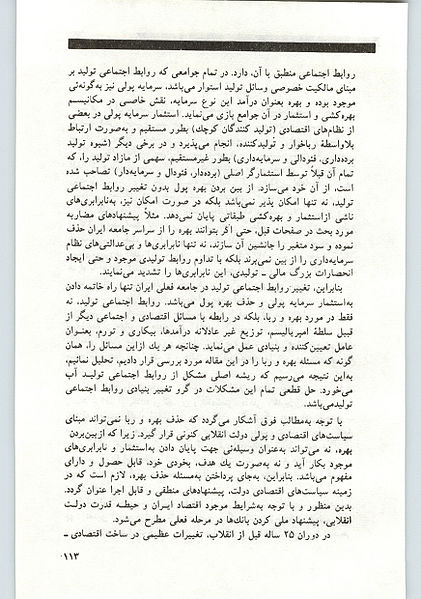 روابط اجتماعی منطبق با آن، دارد. در تمام جوامعی که روابط اجتماعی تولید بر
مبنای مالکیت خصوصی وسائل تولید استوار می‌باشد، سرمایه پولی نیز به‌گونه‌ئی
موجود بوده و بهره بعنوان درآمد این نوع سرمایه، نقش خاصی در مکانیسم
بهره‌کشی و استثمار در آن جوامع بازی می‌نماید. استثمار سرمایه پولی در بعضی
از نظام‌های اقتصادی (تولید کنندگان کوچك) بطور مستقیم و به‌صورت ارتباط
بلاواسطهٔ رباخوار و تولیدکننده، انجام می‌پذیرد و در برخی دیگر (شیوه تولید
برده‌داری، فئودالی و سرمایه‌داری) بطور غیرمستقیم، سهمی از مازاد تولید را، که
تمام آن قبلاً توسط استثمارگر اصلی (برده‌دار، فئودال و سرمایه‌دار) تصاحب شده
است، از آن خود می‌سازد. از بین بردن بهره پول بدون تغییر روابط اجتماعی
تولید، نه تنها امکان پذیر نمی‌باشد بلکه در صورت امکان نیز، به‌نابرابری‌های
ناشی ازاستثمار و بهره‌کشی طبقاتی پایان نمی‌دهد. مثلاً پیشنهادهای مضاربه
مورد بحث در صفحات قبل، حتی اگر بتوانند بهره را از سراسر جامعه ایران حذف
نموده و سود متغیر را جانشین آن سازند، نه تنها نابرابری‌ها و بی‌عدالتی‌های نظام
سرمایه‌داری را از بین نمی‌برند بلکه با تداوم روابط تولیدی موجود و حتی ایجاد
انحصارات بزرگ مالی ـ تولیدی، این نابرابری‌ها را تشدید می‌نمایند.
بنابراین، تغییر روابط اجتماعی تولید در جامعه فعلی ایران تنها راه خاتمه دادن
به‌استثمار سرمایه پولی و حذف بهره پول می‌باشد. روابط اجتماعی تولید، نه
فقط در مورد بهره و ربا، بلکه در رابطه با مسائل اقتصادی و اجتماعی دیگر از
قبیل سلطهٔ امپریالیسم، توزیع غیر عادلانه درآمدها، بیکاری و تورم، بعنوان
عامل تعیین‌کننده و بنیادی عمل می‌نماید. چنانچه هر یك ازاین مسائل را، همان
گونه که مسئله بهره و ربا را در این مقاله مورد بررسی قرار دادیم، تحلیل نمائیم،
به‌این نتیجه می‌رسیم که ریشه اصلی مشکل از روابط اجتماعی تولید آب
می‌خورد. حل قطعی تمام این مشکلات در گرو تغییر بنیادی روابط اجتماعی
تولیدمی‌باشد.
با توجه به‌مطالب فوق آشکار می‌گردد که حذف بهره و ربا نمی‌تواند مبنای
سیاست‌های اقتصادی و پولی دولت انقلابی کنونی قرار گیرد. زیرا که ازبین‌بردن
بهره، نه می‌تواند به‌عنوان وسیله‌ئی جهت پایان دادن به‌استثمار و نابرابری‌های
موجود بکار آید و نه به‌صورت یك هدف، بخودی خود، قابل حصول و دارای
مفهوم می‌باشد. بنابراین، به‌جای پرداختن به‌مسئله حذف بهره، لازم است که در
زمینه سیاست‌های اقتصادی دولت، پیشنهادهای منطقی و قابل اجرا عنوان گردد.
بدین منظور و با توجه به‌شرایط موجود اقتصاد ایران و حیطه قدرت دولت
انقلابی، پیشنهاد ملی کردن بانك‌ها در مرحله فعلی مطرح می‌شود.
در دوران ۲۵ ساله قبل از انقلاب، تغییرات عظیمی در ساخت اقتصادی ـ
۱۱۳